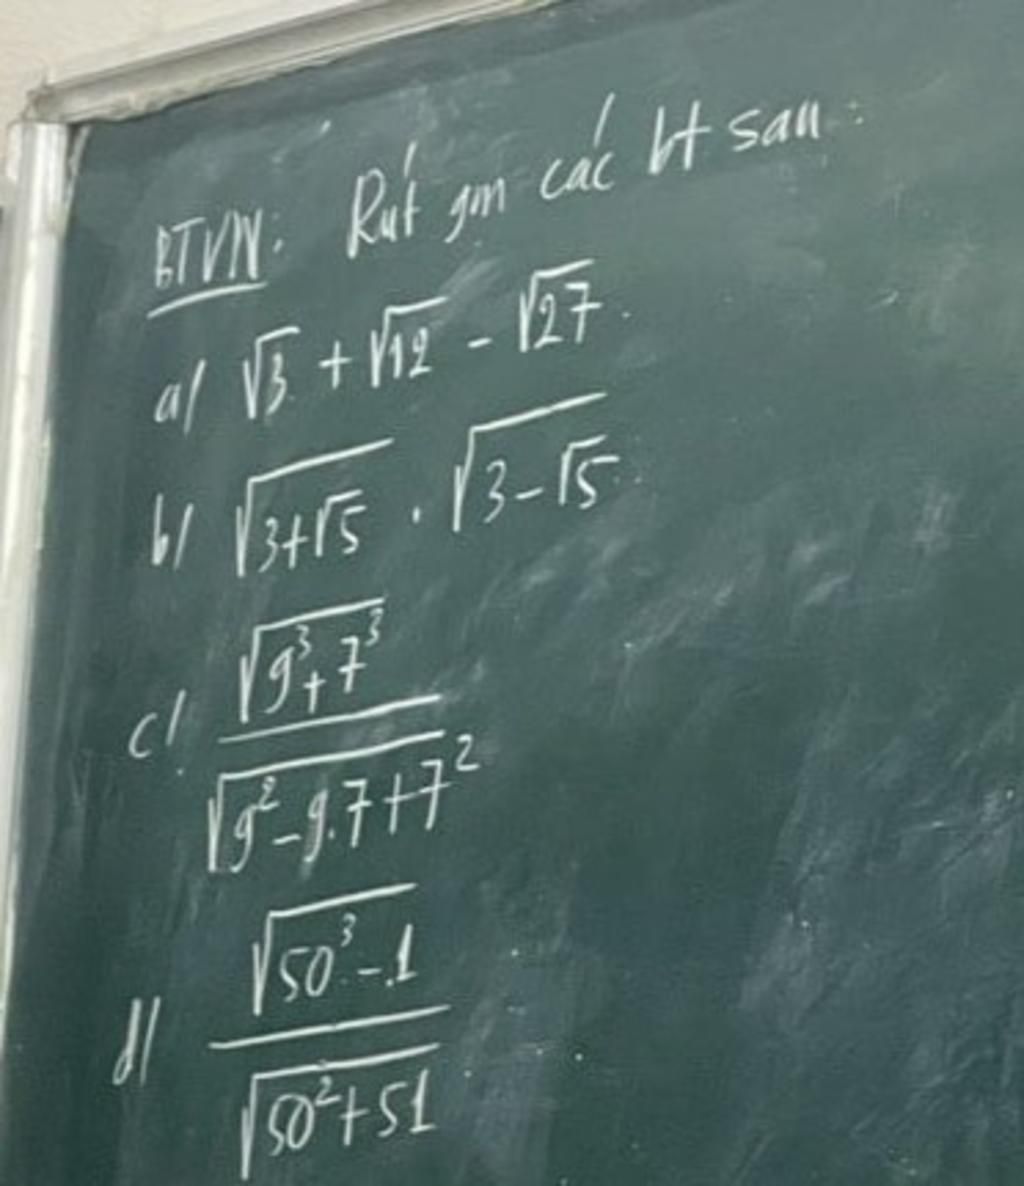 BTVN: Rút gọn các bt sau:
a/ √3 + √12 - √27.
b/ √(3+√5) . √(3-√5).
c/ √(9³+7³) / √(9²-9.7+7²)
d/ √(50³-1) / √(50²+51)